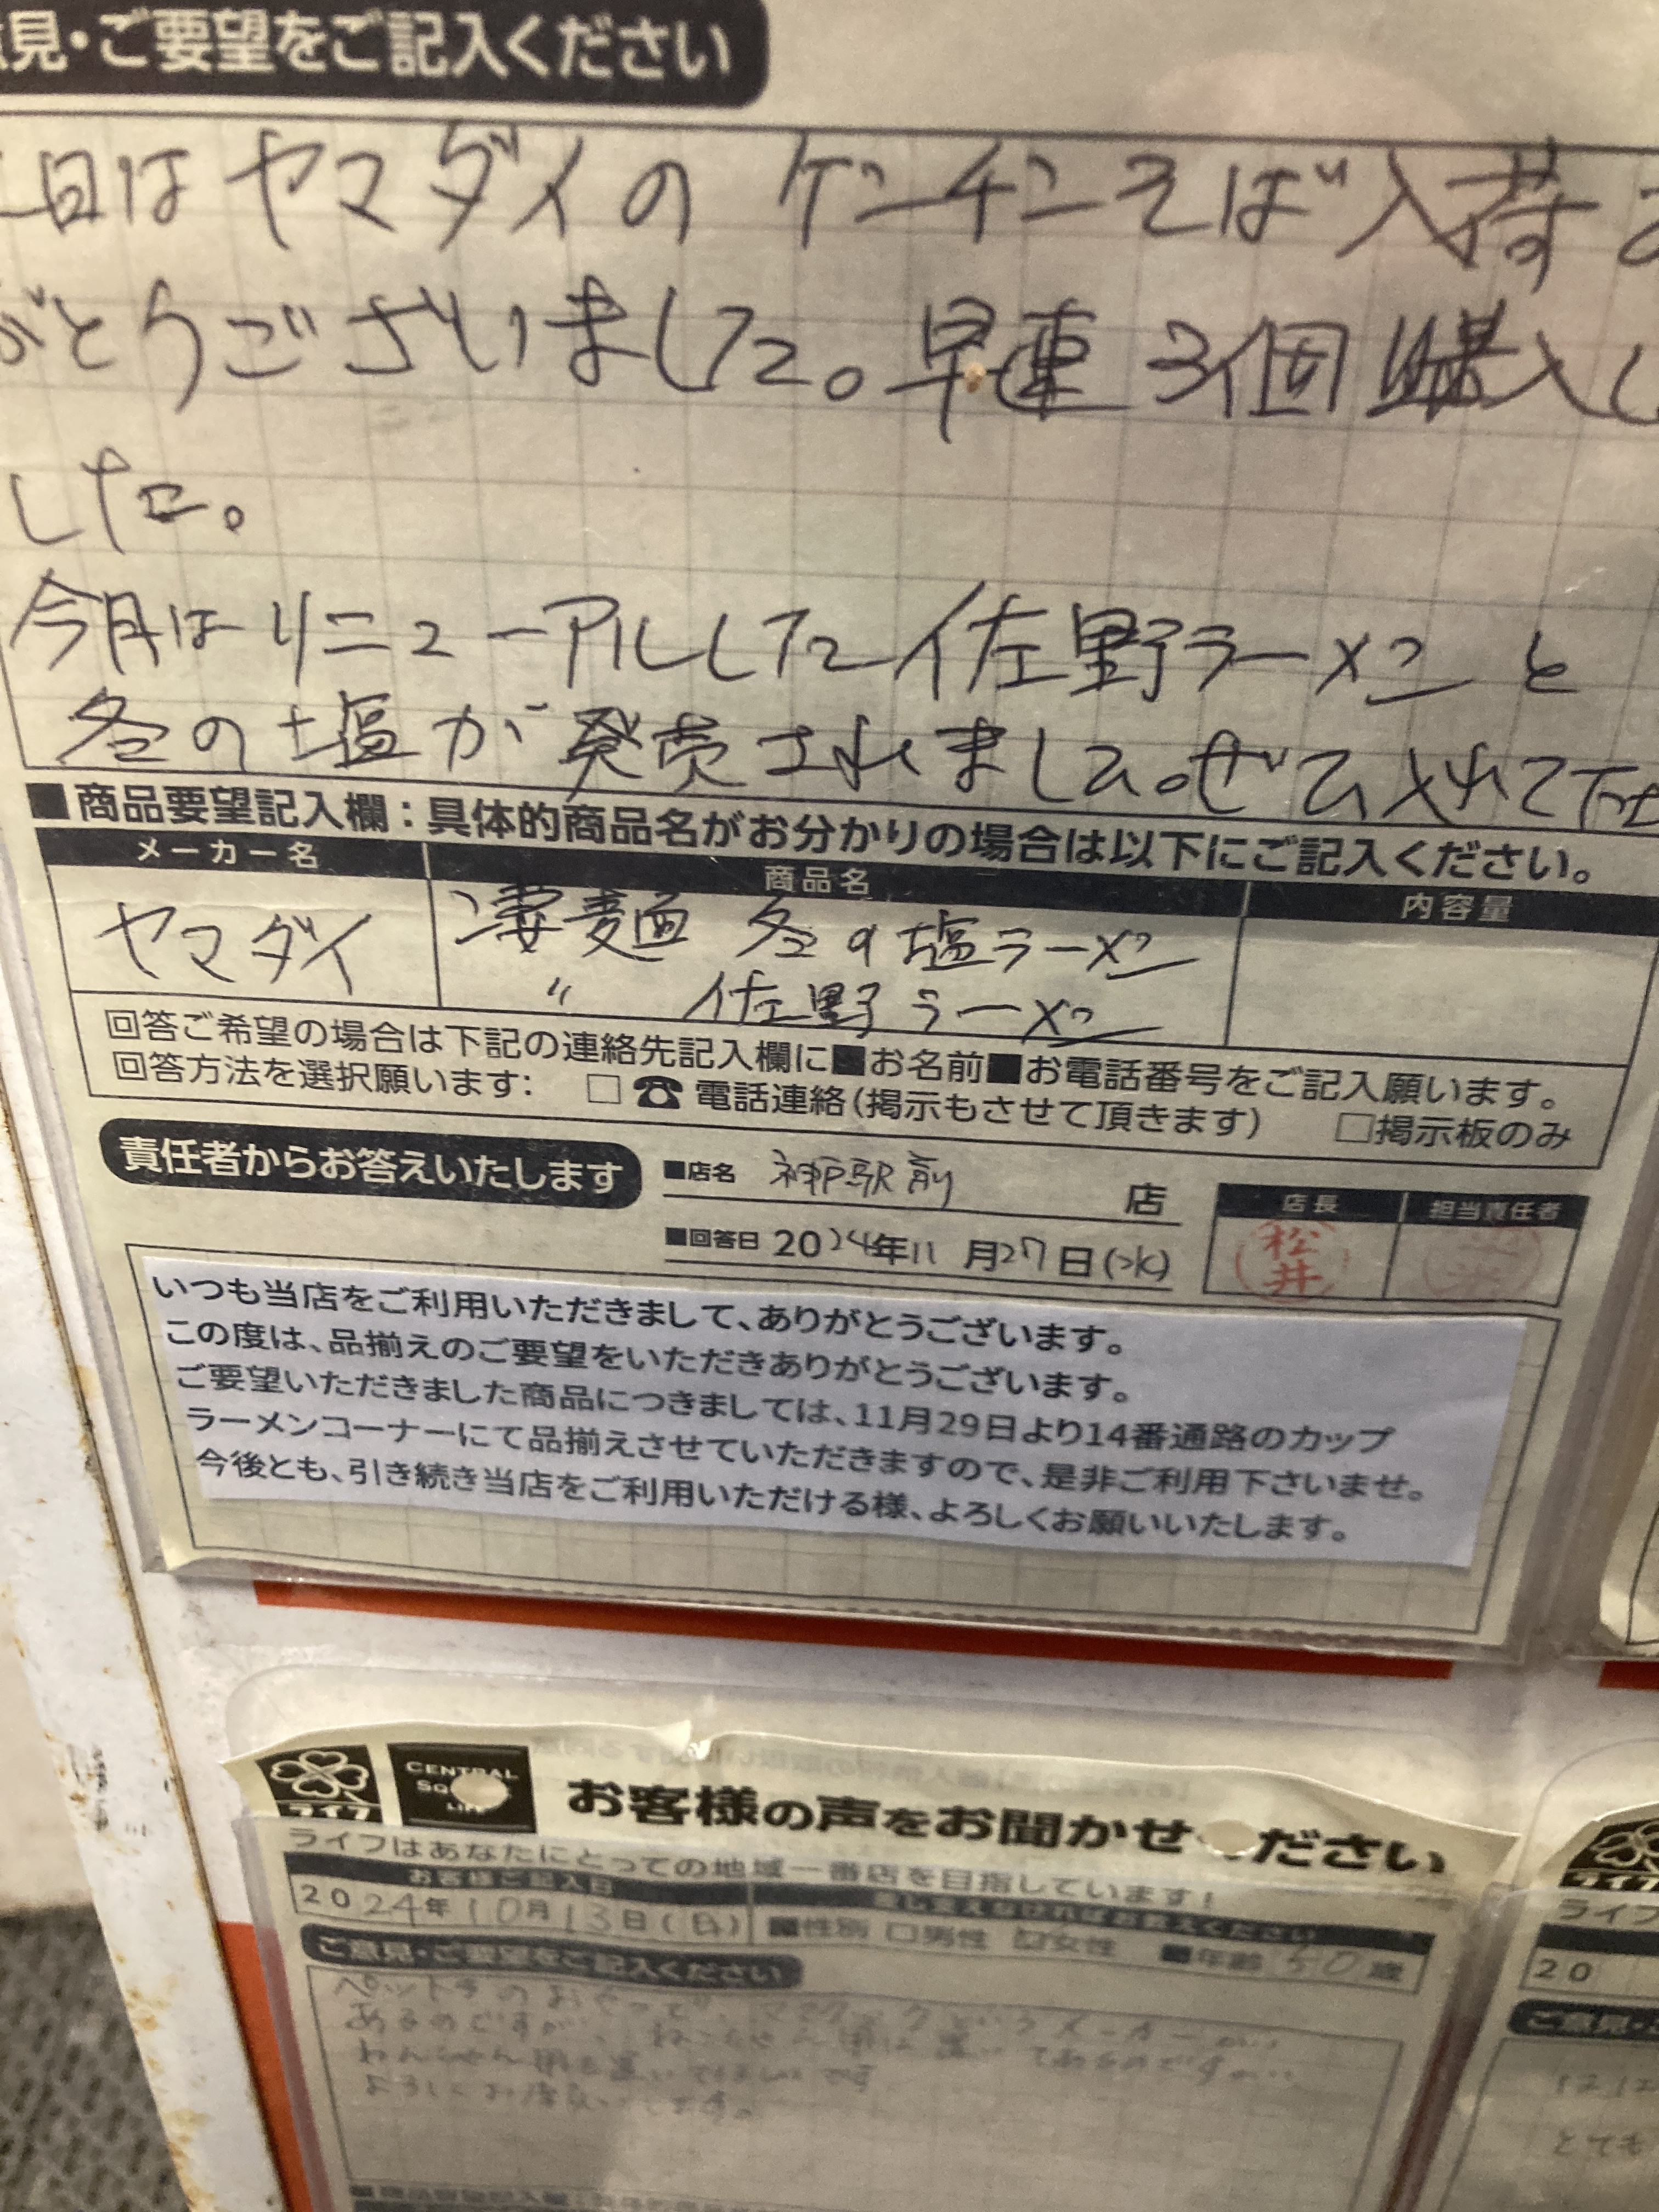 見・ご要望をご記入ください
日はヤマダイのケンチンそば入荷
がとうございました。早速3個購入し
した。
今月はリニューアルした佐野ラーメンと
冬の塩が発売されました。ぜひ入れて下さ
■商品要望記入欄：具体的商品名がお分かりの場合は以下にご記入ください。
メーカー名 商品名 内容量
ヤマダイ 凄麺 冬の塩ラーメン
〃 佐野ラーメン
回答ご希望の場合は下記の連絡先記入欄に■お名前■お電話番号をご記入願います。
回答方法を選択願います: □☎電話連絡(掲示もさせて頂きます) □掲示板のみ
責任者からお答えいたします ■店名 神戸駅前 店
店長 担当責任者
■回答日 2024年11月27日(水)
松井
いつも当店をご利用いただきまして、ありがとうございます。
この度は、品揃えのご要望をいただきありがとうございます。
ご要望いただきました商品につきましては、11月29日より14番通路のカップ
ラーメンコーナーにて品揃えさせていただきますので、是非ご利用下さいませ。
今後とも、引き続き当店をご利用いただける様、よろしくお願いいたします。
ライフ CENTRAL SQUARE LIFE お客様の声をお聞かせください
ライフはあなたにとっての地域一番店を目指しています!
お客様ご記入日 差し支えなければお教えください
2024年10月13日(日) ■性別 □男性 ☑女性 ■年齢 50歳
ご意見・ご要望をご記入ください
ペットラのおやつで、
あるのですが、
よろしくお願いします。
ライフ
20
ご意見・
とても